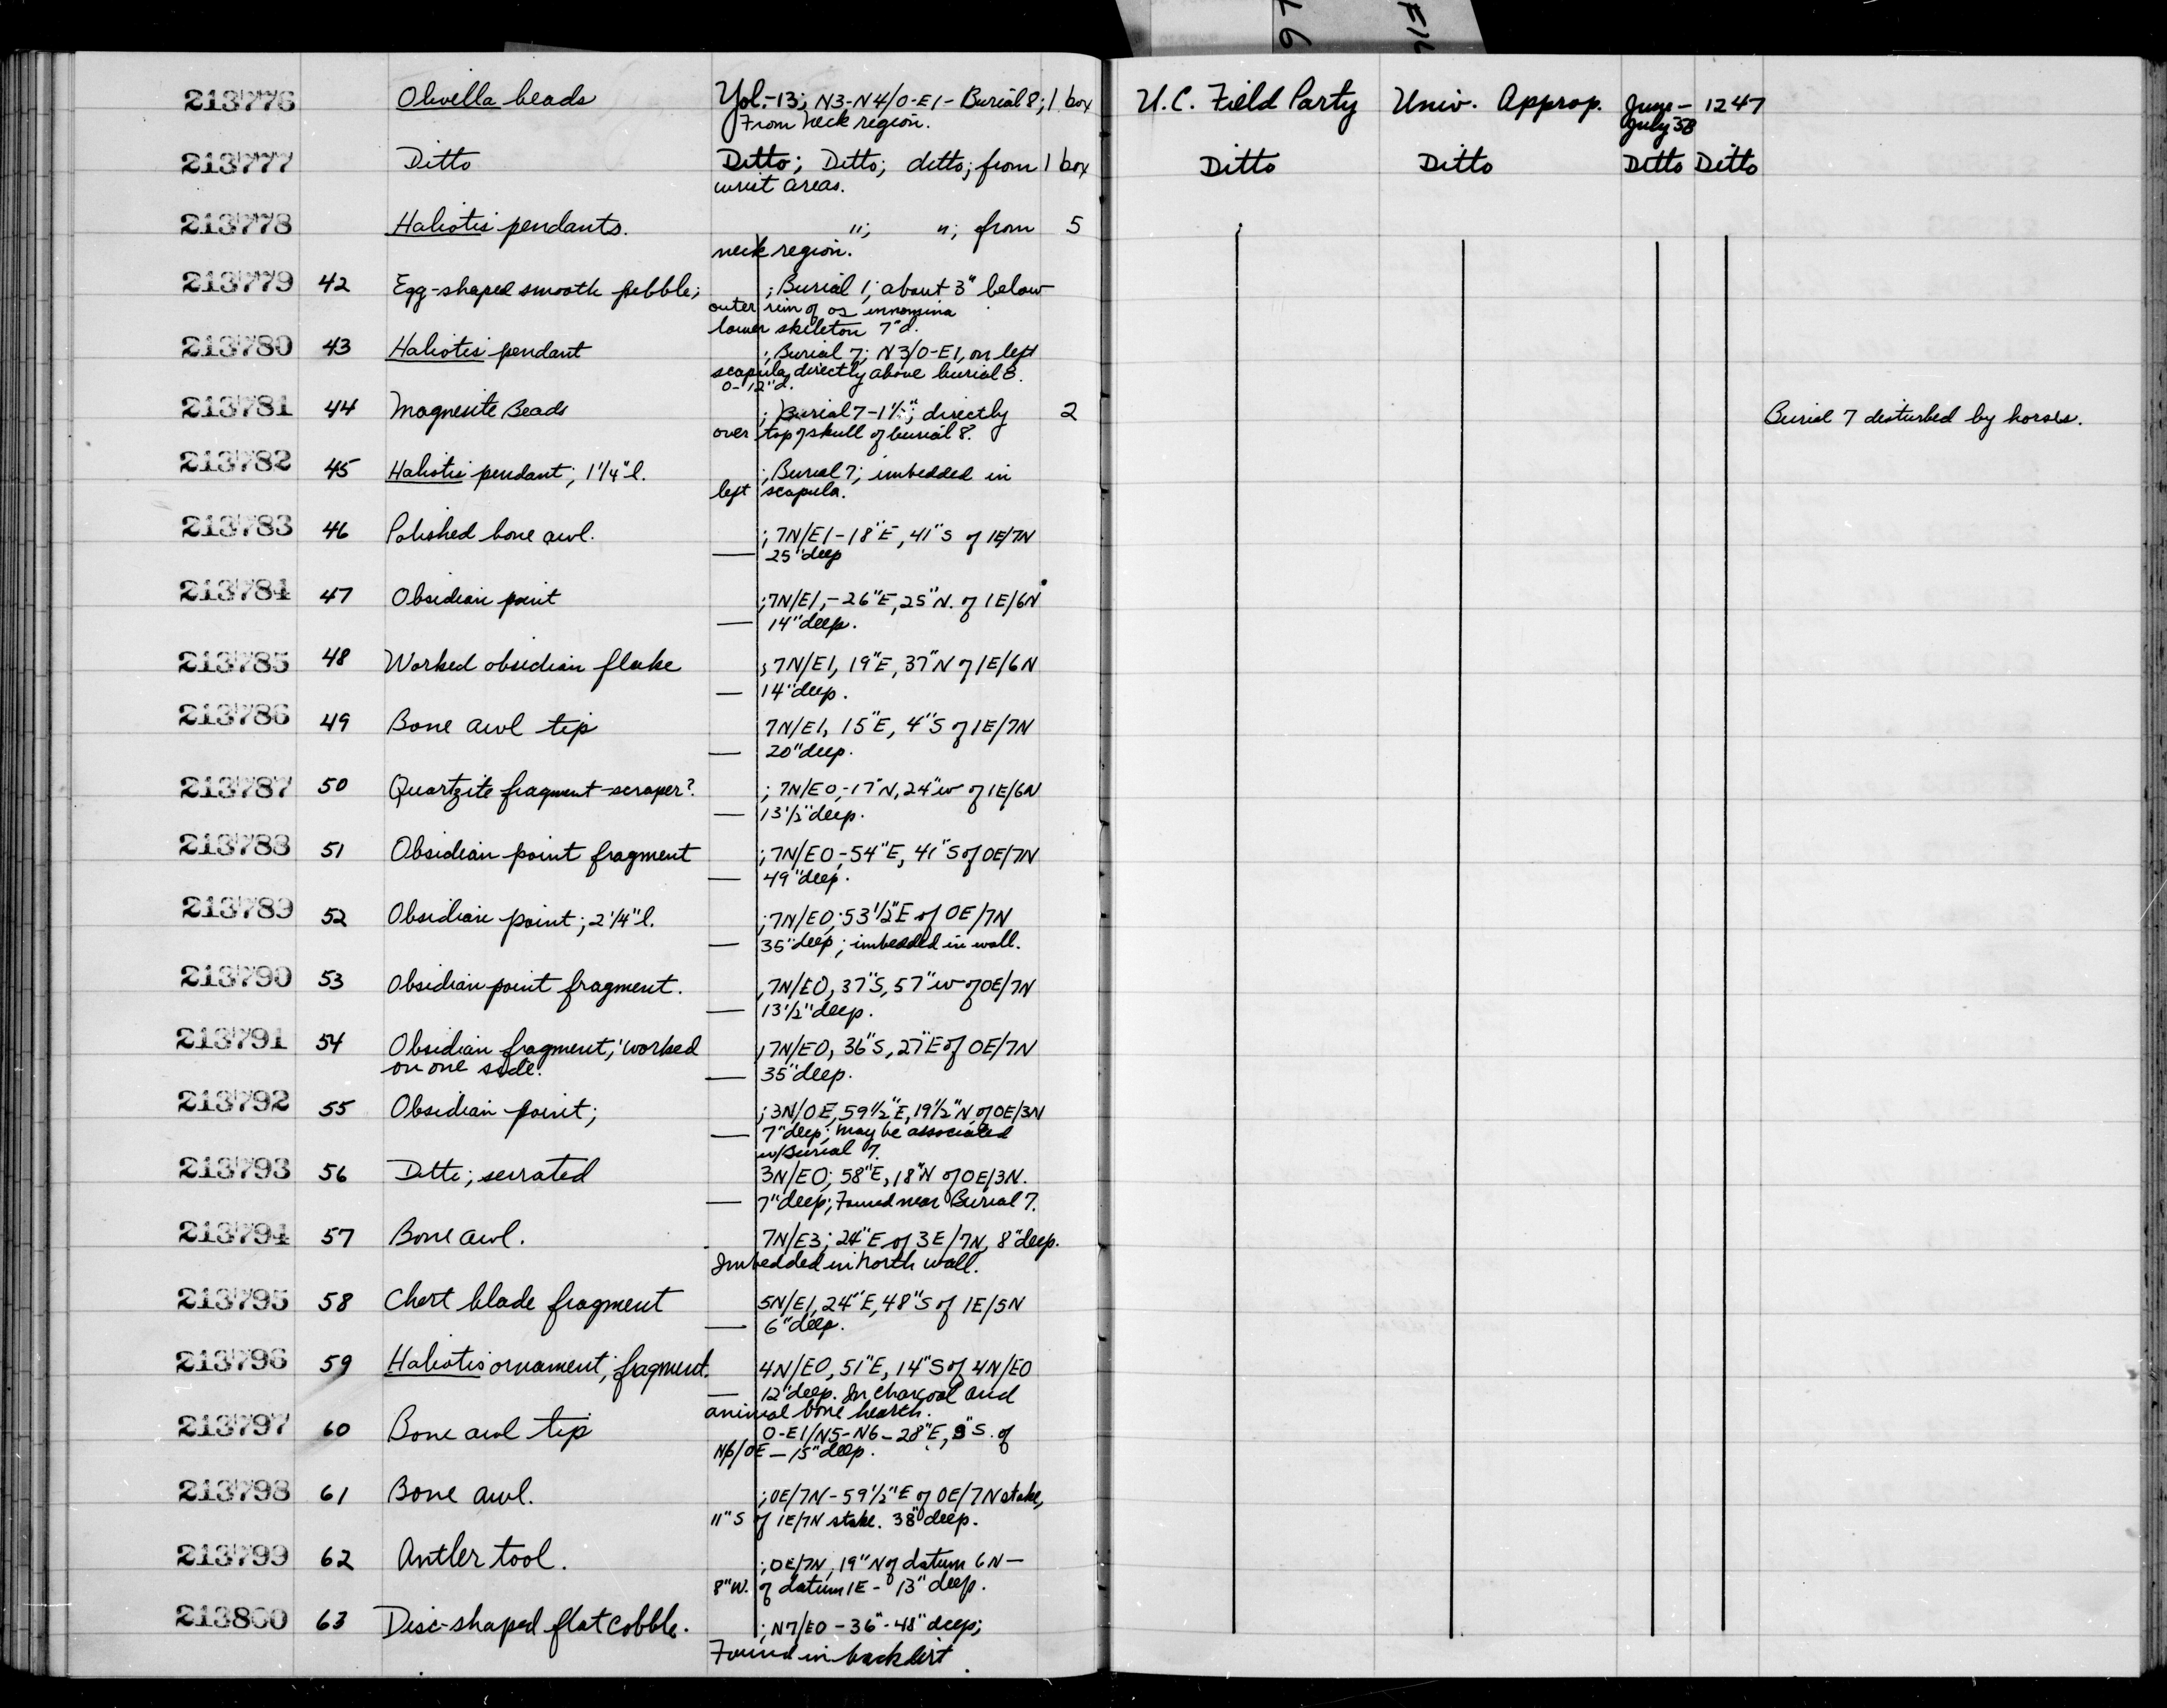 213776 Olivella beads Yol.-13; N3-N4/0-E1- Burial 8; 1 box U.C. Field Party Univ. Approp. June- 1247
From neck region. July '58
213777 Ditto Ditto; Ditto; ditto; from 1 box Ditto Ditto Ditto Ditto
wrist areas.
213778 Haliotis pendants. "; "; from 5
neck region.
213779 42 Egg-shaped smooth pebble; ; Burial 1; about 3" below
outer rim of os innomina
lower skeleton 7"d.
213780 43 Haliotis pendant ; Burial 7; N3/0-E1, on left
scapula, directly above burial 8.
0-12"d.
213781 44 Magnesite Beads ; Burial 7-1½"; directly 2 Burial 7 disturbed by horses.
over top of skull of burial 8.
213782 45 Haliotis pendant; 1¼"l. ; Burial 7; imbedded in
left scapula.
213783 46 Polished bone awl. ; 7N/E1-18"E, 41"S of 1E/7N
— 25"deep
213784 47 Obsidian point ; 7N/E1,-26"E, 25"N. of 1E/6N
— 14"deep.
213785 48 Worked obsidian flake ; 7N/E1, 19"E, 37"N of 1E/6N
— 14"deep.
213786 49 Bone awl tip 7N/E1, 15"E, 4"S of 1E/7N
— 20"deep.
213787 50 Quartzite fragment-scraper? ; 7N/E0,-17"N, 24"W of 1E/6N
— 13½"deep.
213788 51 Obsidian point fragment ; 7N/E0,-54"E, 41"S of 0E/7N
— 49"deep.
213789 52 Obsidian point; 2¼"l. ; 7N/E0; 53½"E of 0E/7N
— 35"deep; imbedded in wall.
213790 53 Obsidian point fragment. , 7N/E0, 37"S, 57"W of 0E/7N
— 13½"deep.
213791 54 Obsidian fragment; worked , 7N/E0, 36"S, 27"E of 0E/7N
on one side. — 35"deep.
213792 55 Obsidian point; ; 3N/0E, 59½"E, 19½"N of 0E/3N
— 7"deep; may be associated
w/Burial 7.
213793 56 Ditto; serrated 3N/E0; 58"E, 18"N of 0E/3N.
— 7"deep; Found near Burial 7.
213794 57 Bone awl. 7N/E3; 24"E of 3E/7N, 8"deep.
Imbedded in North wall.
213795 58 Chert blade fragment 5N/E1, 24"E, 48"S of 1E/5N
— 6"deep.
213796 59 Haliotis ornament; fragment. 4N/E0, 51"E, 14"S of 4N/E0
— 12"deep. In charcoal and
animal bone hearth.
213797 60 Bone awl tip 0-E1/N5-N6-28"E, 9"S. of
N6/0E — 15"deep.
213798 61 Bone awl. ; 0E/7N-59½"E of 0E/7N stake,
11"S of 1E/7N stake. 38"deep.
213799 62 Antler tool. ; 0E/7N, 19"N of datum 6N—
8"W. of datum 1E- 13"deep.
213800 63 Disc-shaped flat cobble. ; N7/E0-36"-48"deep;
Found in backdirt